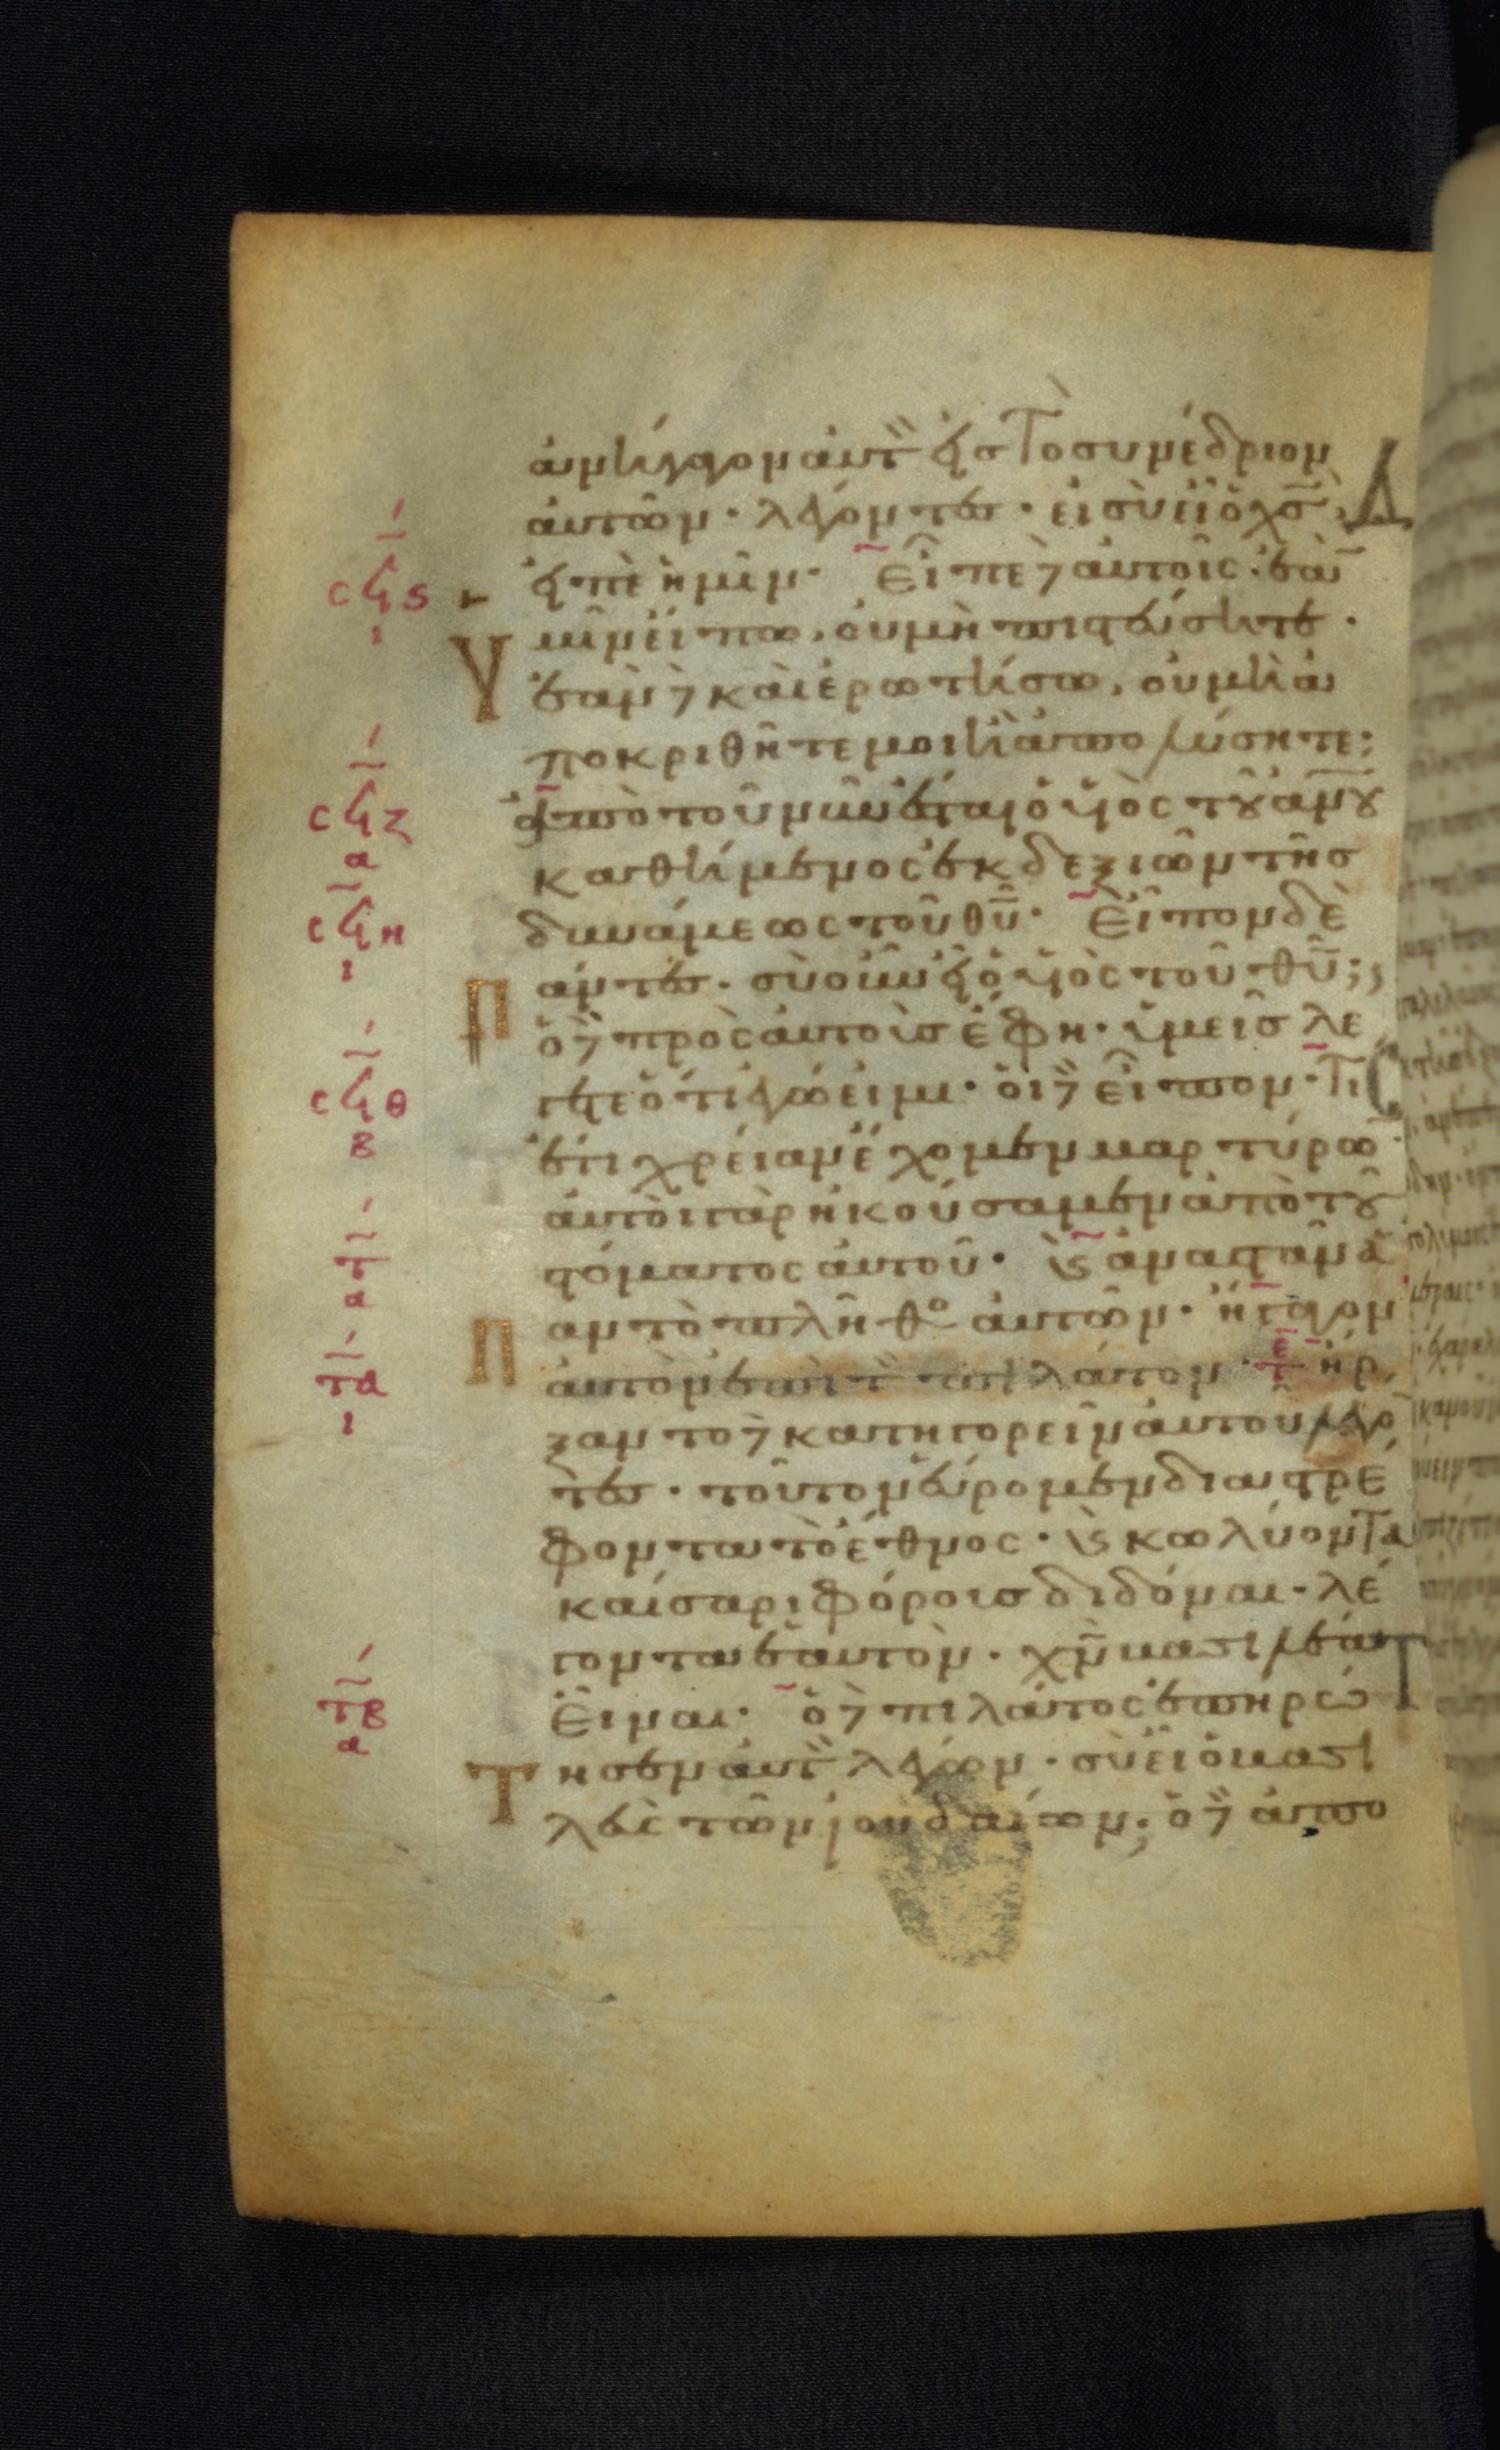 ἀνήγαγον αὐτὸν εἰς τὸ συνέδριον
αὐτῶν· λέγοντες· εἰ σὺ εἶ ὁ χσ̅,
σϟϛ εἰπὲ ἡμῖν· Εἶπε δὲ αὐτοῖς· ἐὰν
ι ὑμῖν εἴπω, οὐ μὴ πιστεύσητε·
ἐὰν δὲ καὶ ἐρωτήσω, οὐ μὴ ἀ
ποκριθῆτέ μοι ἢ ἀπολύσητε·
σϟζ ἀπὸ τοῦ νῦν ἔσται ὁ υἱὸς τοῦ ἀνου
α καθήμενος ἐκ δεξιῶν τῆς
σϟη δυνάμεως τοῦ θυ̅· Εἶπον δὲ
ι πάντες· σὺ οὖν εἶ ὁ υἱὸς τοῦ θυ̅;
ὁ δὲ πρὸς αὐτοὺς ἔφη· ὑμεῖς λέ
σϟθ γετε ὅτι ἐγώ εἰμι· οἱ δὲ εἶπον· Τί
β ἔτι χρείαν ἔχομεν μαρτύρων·
αὐτοὶ γὰρ ἠκούσαμεν ἀπὸ τοῦ
τ στόματος αὐτοῦ· καὶ ἀναστὰν ἅ
α παν τὸ πλῆθος αὐτῶν· ἤγαγον
τα αὐτὸν ἐπὶ τὸν πιλάτον· ἤρ
ι ξαντο δὲ κατηγορεῖν αὐτοῦ λέγο
τες· τοῦτον εὕρομεν διαστρέ
φοντα τὸ ἔθνος· καὶ κωλύοντα
καίσαρι φόρους διδόναι· λέ
γοντα ἑαυτὸν· χν̅ βασιλέα
τβ εἶναι· ὁ δὲ πιλάτος ἐπηρώ
α τησεν αὐτὸν λέγων· σὺ εἶ ὁ βασι
λεὺς τῶν ἰουδαίων; ὁ δὲ ἀπο